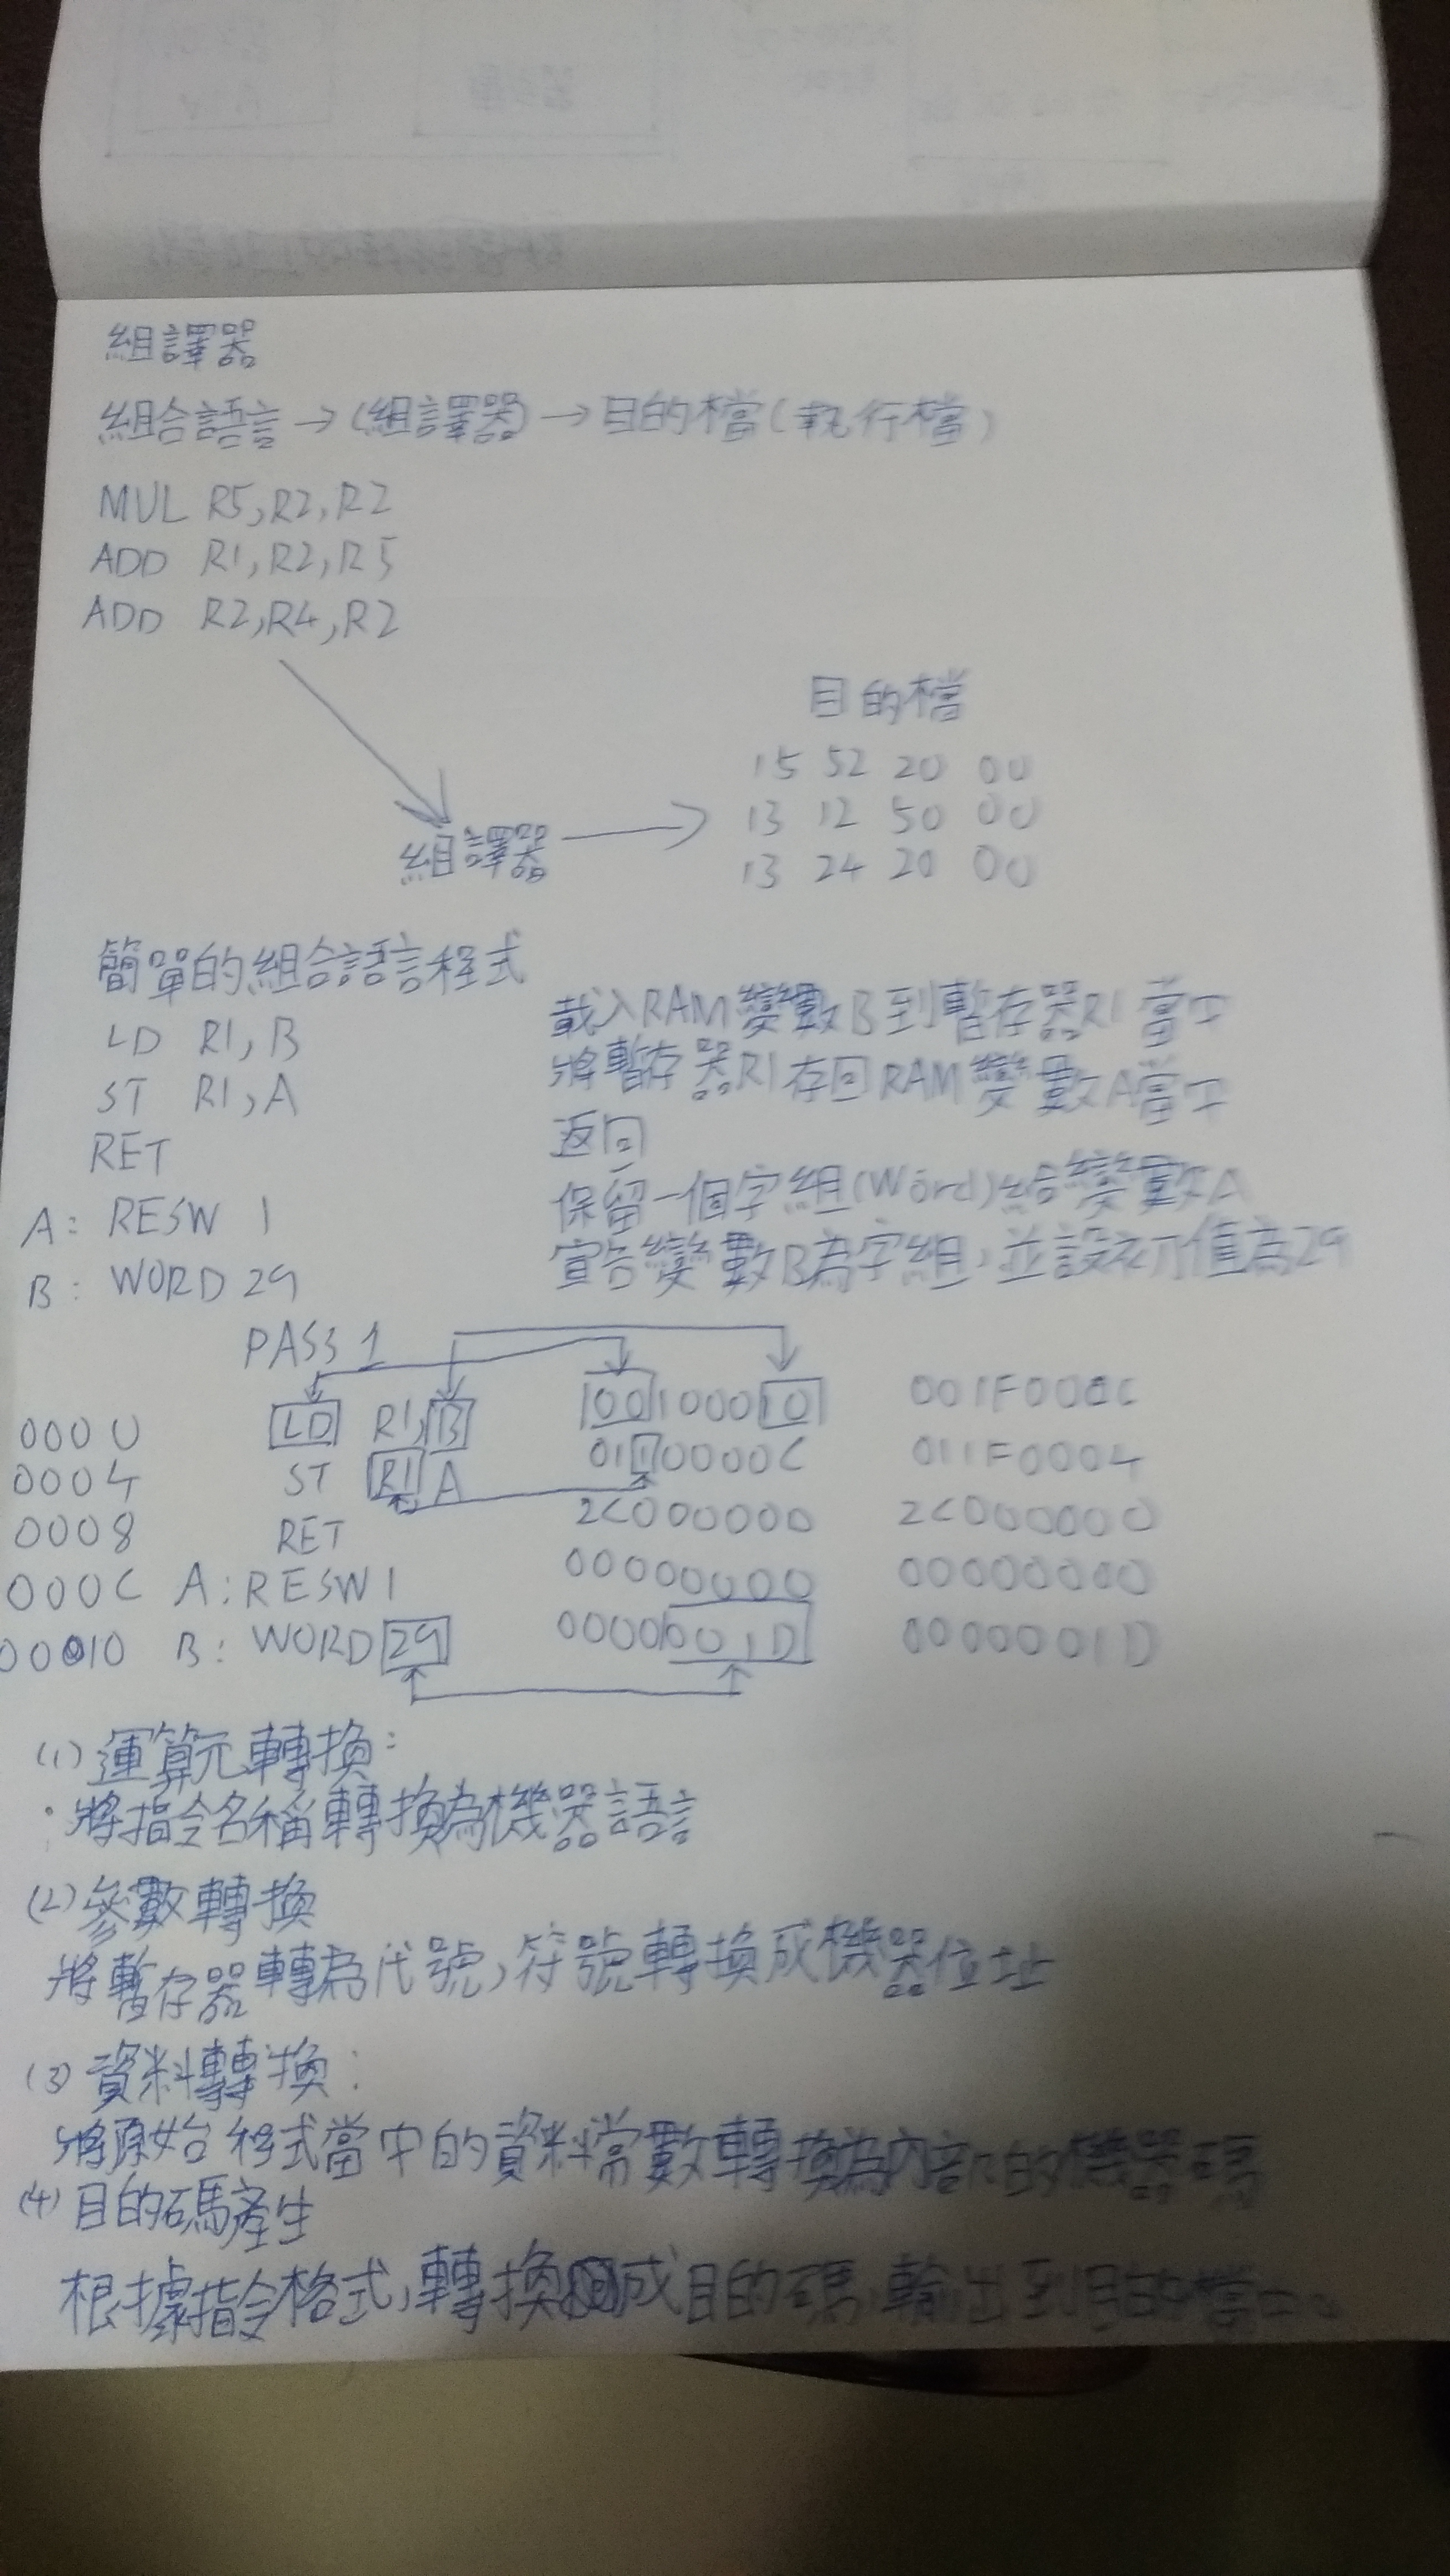 組譯器
組合語言→(組譯器)→目的檔(執行檔)
MUL R5,R2,R2
ADD R1,R2,R5
ADD R2,R4,R2
目的檔
15 52 20 00
13 12 50 00
13 24 20 00
組譯器
簡單的組合語言程式
LD R1,B 載入RAM變數B到暫存器R1當中
ST R1,A 將暫存器R1存回RAM變數A當中
RET 返回
A: RESW 1 保留一個字組(Word)給變數A
B: WORD 29 宣告變數B為字組,並設初值為29
PASS 1
0000 LD R1,B 00100010 001F000C
0004 ST R1 A 0110000C 011F0004
0008 RET 2C000000 2C000000
000C A:RESW1 00000000 00000000
00010 B: WORD 29 0000001D 0000001D
(1)運算元轉換:
・將指令名稱轉換為機器語言
(2)參數轉換
將暫存器轉為代號,符號轉換成機器位址
(3)資料轉換:
將原始程式當中的資料常數轉換為內部的機器碼
(4)目的碼產生
根據指令格式,轉換成目的碼 輸出到目的檔中